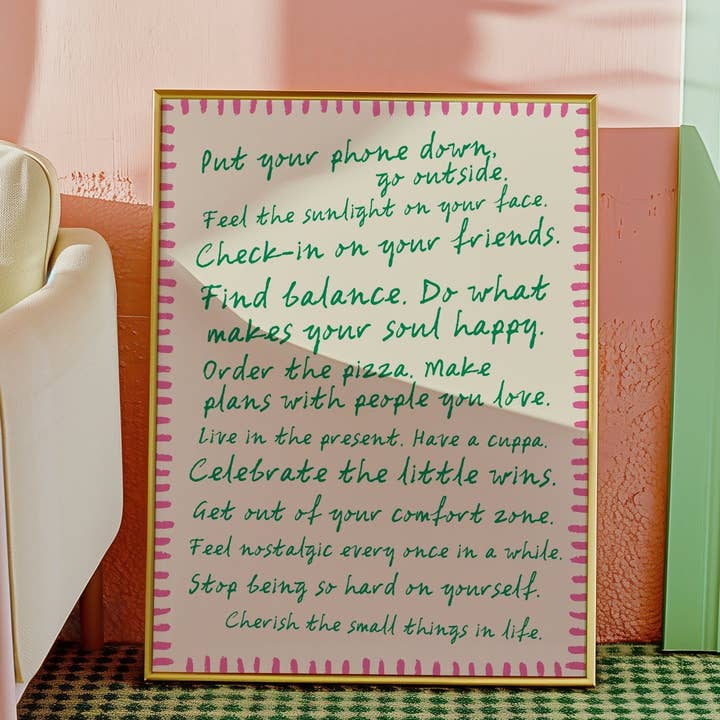 Put your phone down,
go outside.
Feel the sunlight on your face.
Check-in on your friends.
Find balance. Do what
makes your soul happy.
Order the pizza. Make
plans with people you love.
Live in the present. Have a cuppa.
Celebrate the little wins.
Get out of your comfort zone.
Feel nostalgic every once in a while.
Stop being so hard on yourself.
Cherish the small things in life.